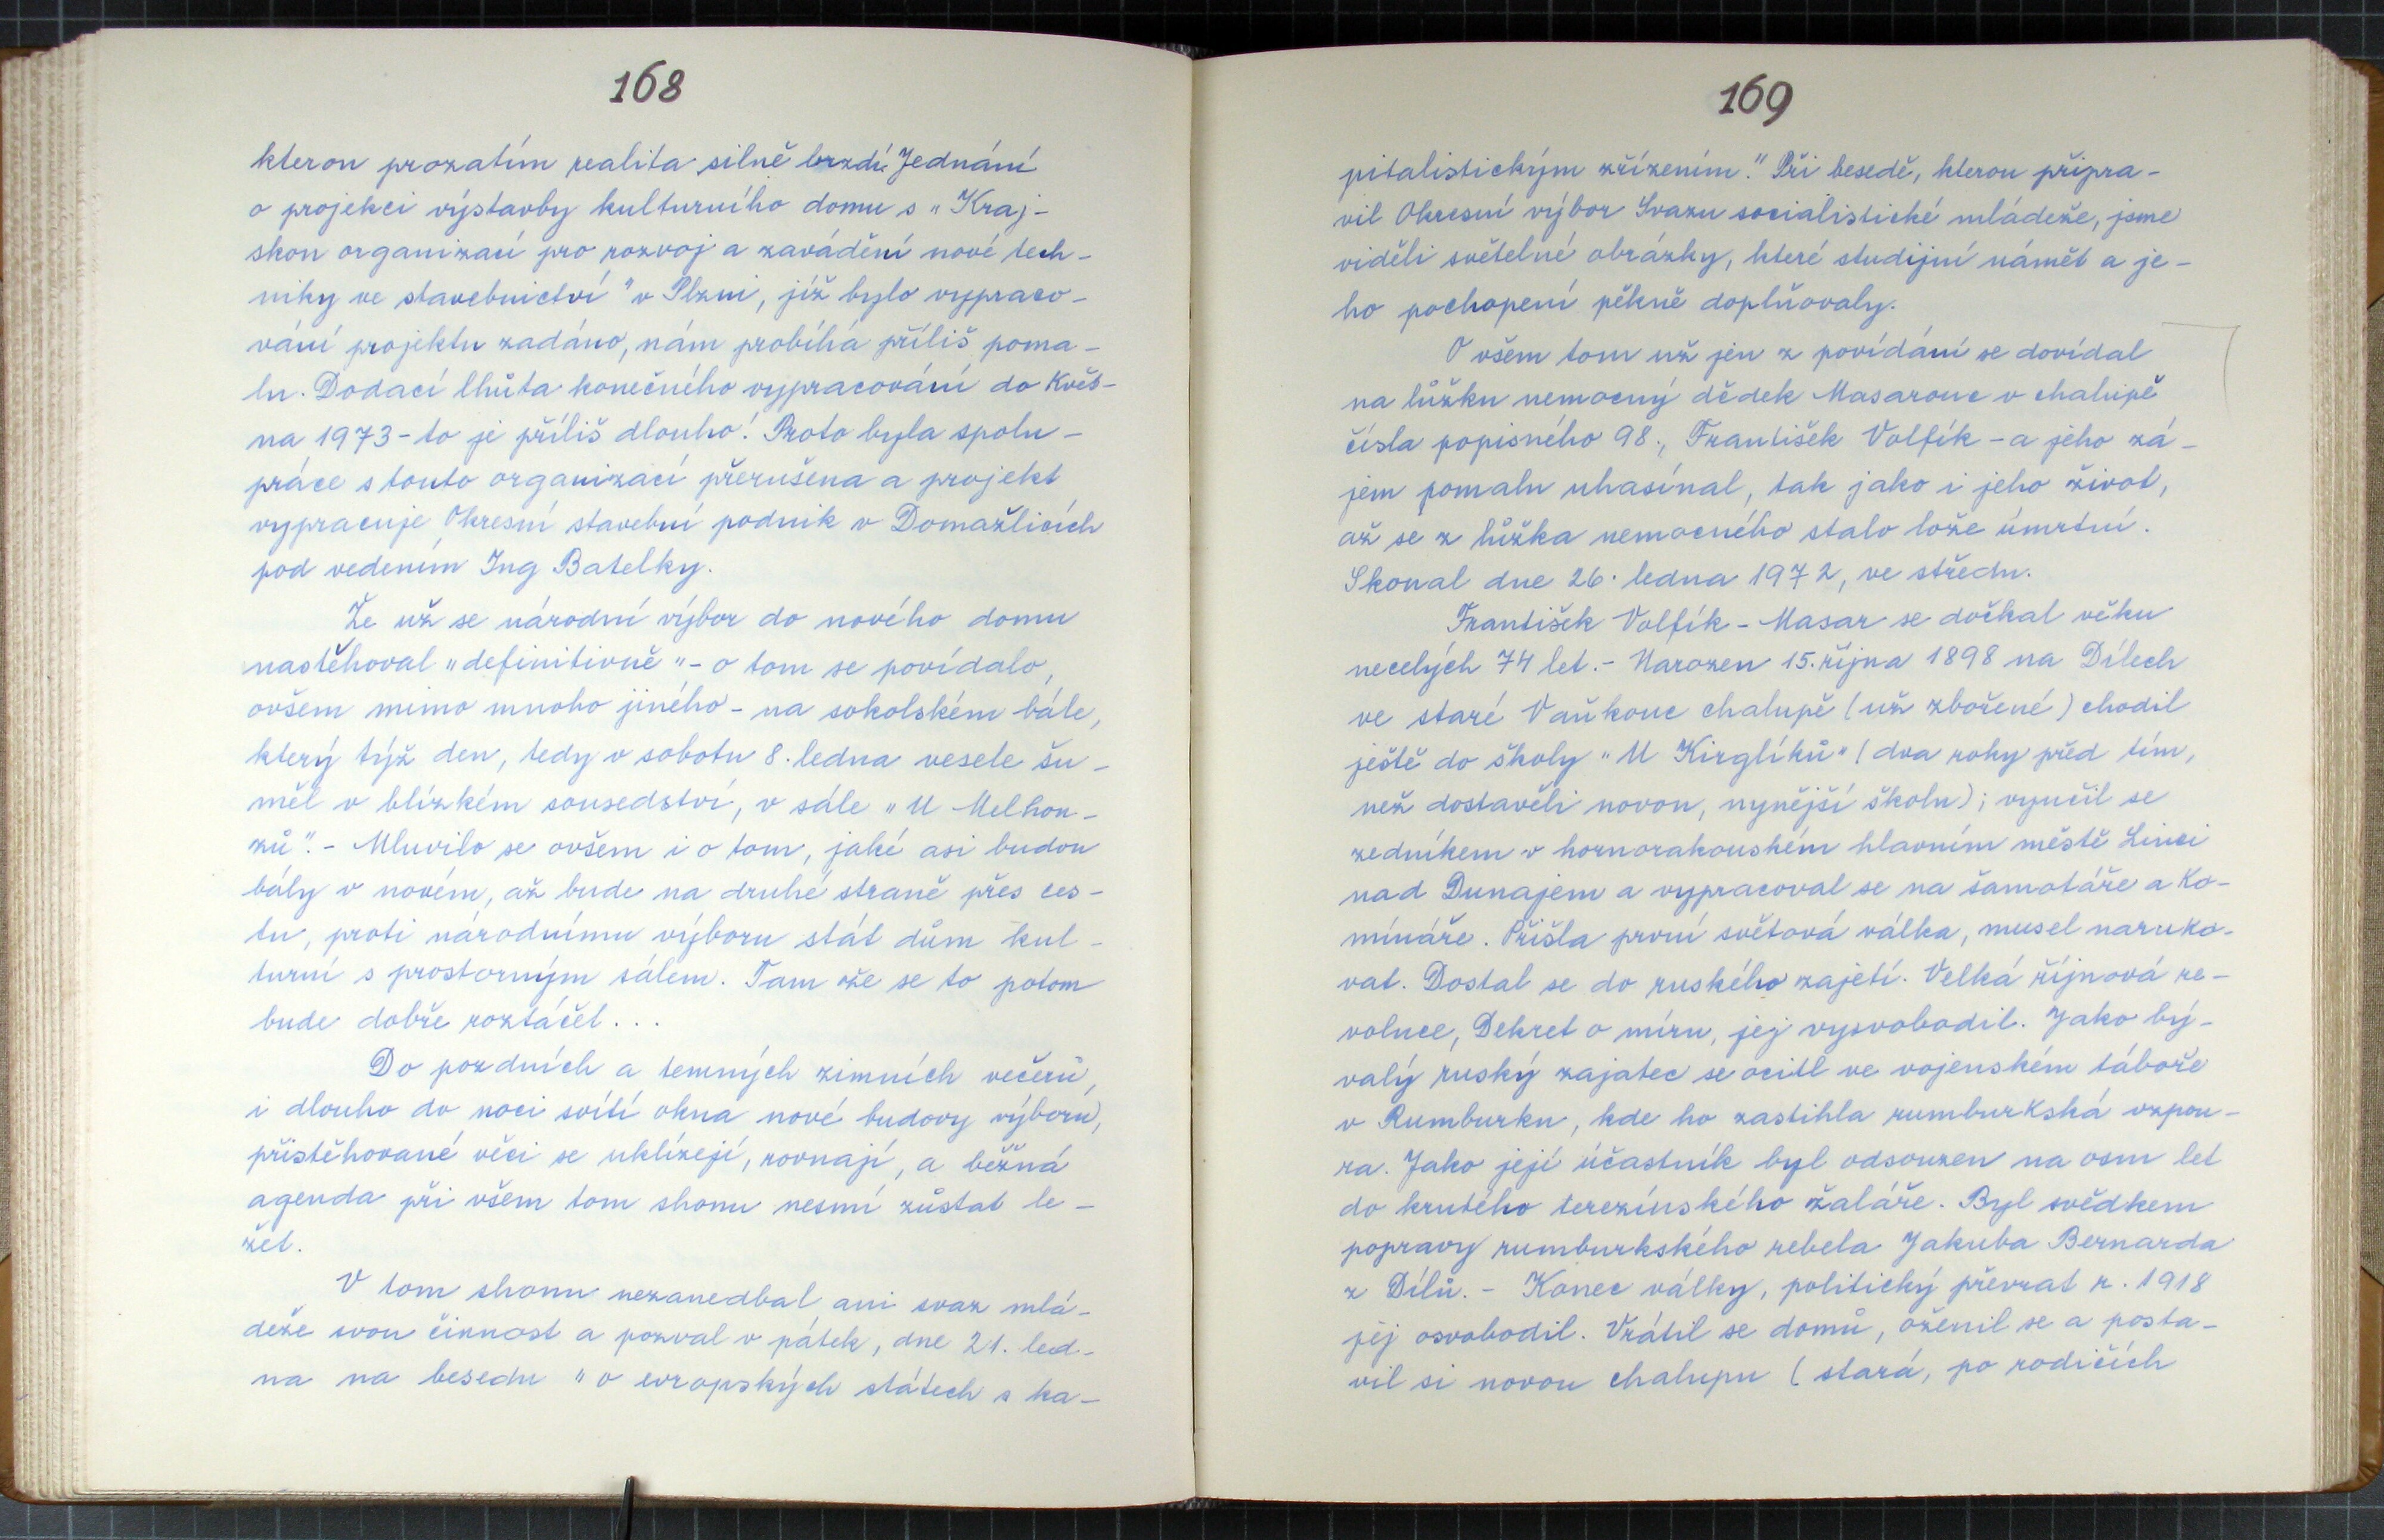 168
kterou prozatím realita silně brzdí. Jednání
o projekci výstavby kulturního domu s „Kraj-
skou organizací pro rozvoj a zavádění nové tech-
niky ve stavebnictví" v Plzni, jíž bylo vypraco-
vání projektu zadáno, nám probíhá příliš poma-
lu. Dodací lhůta konečného vypracování do Květ-
na 1973 - to je příliš dlouho! Proto byla spolu-
práce s touto organizací přerušena a projekt
vypracuje Okresní stavební podnik v Domažlicích
pod vedením Ing Batelky.
Že už se národní výbor do nového domu
nastěhoval „definitivně" - o tom se povídalo,
ovšem mimo mnoho jiného - na sokolském bále,
který týž den, tedy v sobotu 8. ledna vesele šu-
měl v blízkém sousedství, v sále „U Melhou-
zů". - Mluvilo se ovšem i o tom, jaké asi budou
bály v novém, až bude na druhé straně přes ces-
tu, proti národnímu výboru stát dům kul-
turní s prostorným sálem. Tam že se to potom
bude dobře roztáčet...
Do pozdních a temných zimních večerů,
i dlouho do noci svítí okna nové budovy výboru,
přistěhované věci se uklízejí, rovnají, a běžná
agenda při všem tom shonu nesmí zůstat le-
žet.
V tom shonu nezanedbal ani svaz mlá-
deže svou činnost a pozval v pátek, dne 21. led-
na na besedu „o evropských státech s ka-
169
pitalistickým zřízením." Při besedě, kterou připra-
vil Okresní výbor Svazu socialistické mládeže, jsme
viděli světelné obrázky, které studijní námět a je-
ho pochopení pěkně doplňovaly.
O všem tom už jen z povídání se dovídal
na lůžku nemocný dědek Masarouc v chalupě
čísla popisného 98., František Volfík - a jeho zá-
jem pomalu uhasínal, tak jako i jeho život,
až se z lůžka nemocného stalo lože úmrtní.
Skonal dne 26. ledna 1972, ve středu.
František Volfík - Masar se dočkal věku
necelých 74 let. - Narozen 15. října 1898 na Dílech
ve staré Vaňkouc chalupě (už zbořené) chodil
ještě do školy „U Kirglíků" (dva roky před tím,
než dostavěli novou, nynější školu); vyučil se
zedníkem v hornorakouském hlavním městě Linci
nad Dunajem a vypracoval se na šamotáře a Ko-
mináře. Přišla první světová válka, musel naruko-
vat. Dostal se do ruského zajetí. Velká říjnová re-
voluce, Dekret o míru, jej vysvobodil. Jako bý-
valý ruský zajatec se ocitl ve vojenském táboře
v Rumburku, kde ho zastihla rumburkská vzpou-
ra. Jako její účastník byl odsouzen na osm let
do krutého terezínského žaláře. Byl svědkem
popravy rumburkského rebela Jakuba Bernarda
z Dílů. - Konec války, politický převrat r. 1918
jej osvobodil. Vrátil se domů, oženil se a posta-
vil si novou chalupu (stará, po rodičích